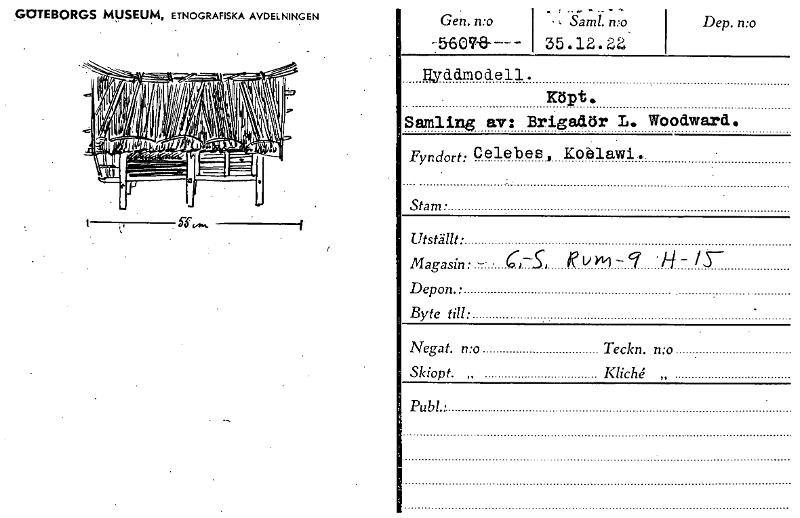 GÖTEBORGS MUSEUM, ETNOGRAFISKA AVDELNINGEN
55 cm
Gen. n:o Saml. n:o Dep. n:o
56078 35.12.22
Hyddmodell.
Köpt.
Samling av: Brigadör L. Woodward.
Fyndort: Celebes, Koèlawi.
Stam:
Utställt:
Magasin: - G.-S. Rum-9 H-15
Depon.:
Byte till:
Negat. n:o Teckn. n:o
Skiopt. „ Kliché „
Publ.: